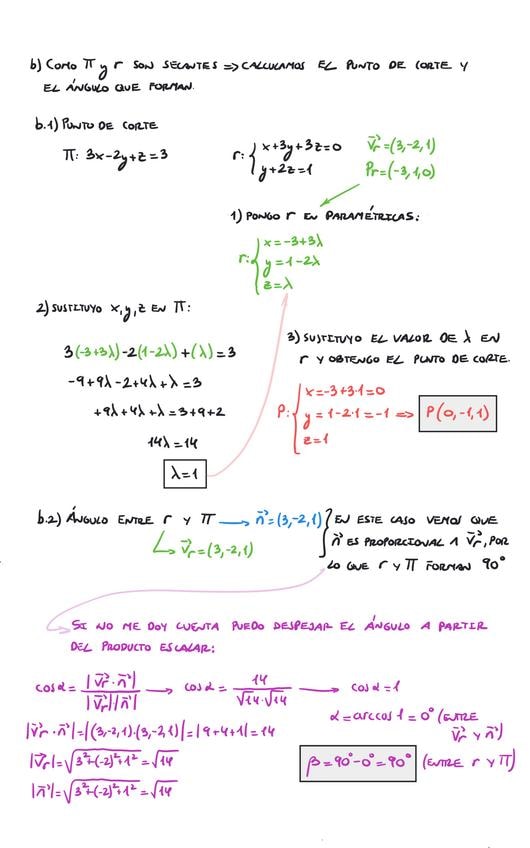 b) COMO π y r SON SECANTES => CALCULAMOS EL PUNTO DE CORTE Y
EL ÁNGULO QUE FORMAN.
b.1) PUNTO DE CORTE
π: 3x-2y+z=3
r: { x+3y+3z=0
y+2z=1
v⃗r=(3,-2,1)
Pr=(-3,1,0)
1) PONGO r EN PARAMÉTRICAS:
r: { x=-3+3λ
y=1-2λ
z=λ
2) SUSTITUYO x,y,z EN π:
3(-3+3λ)-2(1-2λ)+(λ)=3
-9+9λ-2+4λ+λ=3
+9λ+4λ+λ=3+9+2
14λ=14
λ=1
3) SUSTITUYO EL VALOR DE λ EN
r Y OBTENGO EL PUNTO DE CORTE.
P: { x=-3+3·1=0
y=1-2·1=-1 => P(0,-1,1)
z=1
b.2) ÁNGULO ENTRE r Y π → n⃗=(3,-2,1)
v⃗r=(3,-2,1)
EN ESTE CASO VEMOS QUE
n⃗ ES PROPORCIONAL A v⃗r, POR
LO QUE r Y π FORMAN 90°
SI NO ME DOY CUENTA PUEDO DESPEJAR EL ÁNGULO A PARTIR
DEL PRODUCTO ESCALAR:
cos α = |v⃗r·n⃗| / |v⃗r||n⃗| → cos α = 14 / √14·√14 → cos α=1
|v⃗r·n⃗|=|(3,-2,1)·(3,-2,1)|=|9+4+1|=14
α=arccos 1=0° (ENTRE
v⃗r Y n⃗)
|v⃗r|=√3²+(-2)²+1²=√14
β=90°-0°=90° (ENTRE r Y π)
|n⃗|=√3²+(-2)²+1²=√14